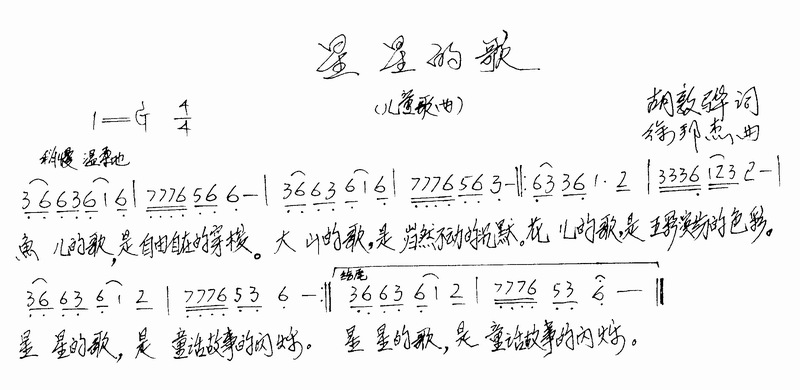 星星的歌
(儿童歌曲)
1=G 4/4
胡敦骅 词
徐邦杰 曲
稍慢 温柔地
3663616 | 777656 6 - | 3663 616 | 777656 3 - |: 6336 1·2 | 3336 123 2 - |
鱼儿的歌,是自由自在的穿梭。大山的歌,是岿然不动的沉默。花儿的歌,是五彩缤纷的色彩。
结尾
3663 61 2 | 777653 6 - :| 3663 61 2 | 7776 53 6 - ||
星星的歌,是童话故事的闪烁。 星星的歌,是童话故事的闪烁。